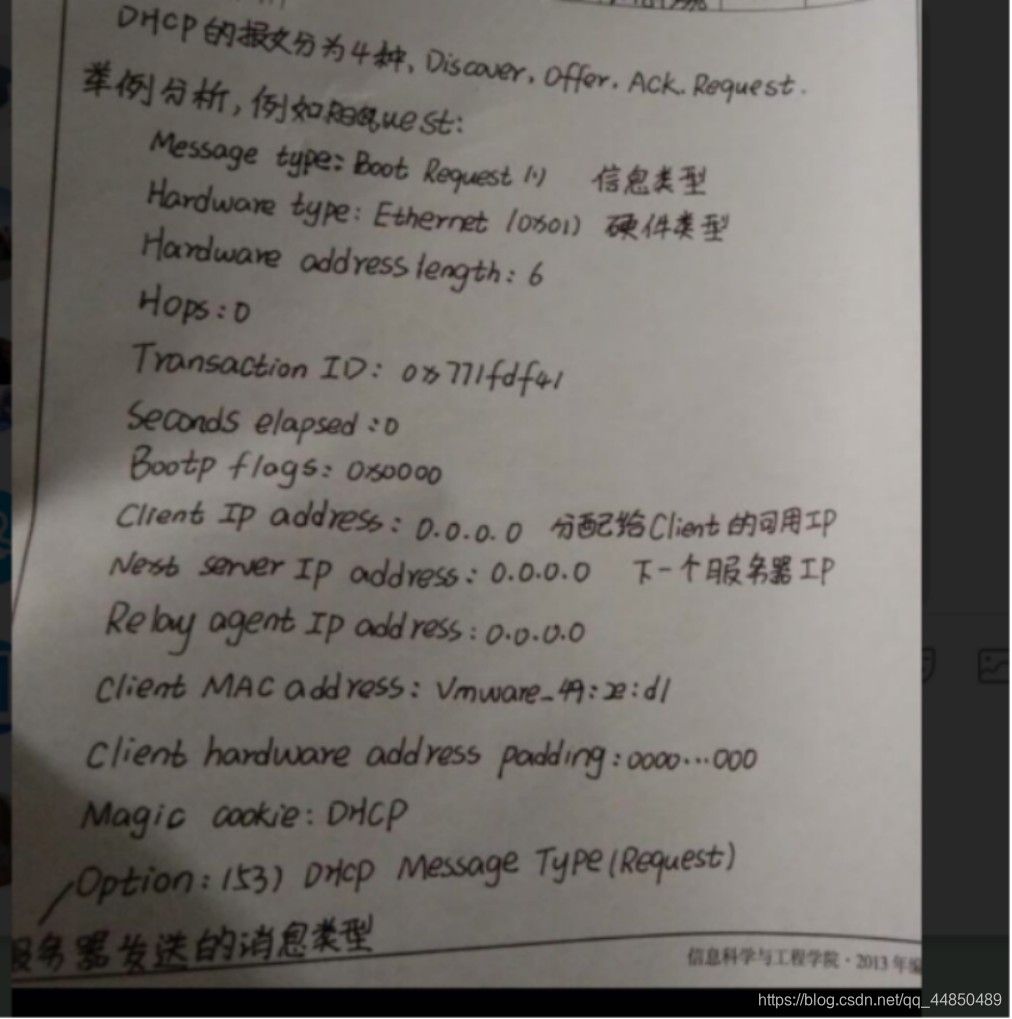 DHCP的报文分为4种、Discover、Offer、Ack、Request.
举例分析,例如Request:
Message type: Boot Request (1) 信息类型
Hardware type: Ethernet (0x01) 硬件类型
Hardware address length: 6
Hops: 0
Transaction ID: 0x771fdf41
Seconds elapsed: 0
Bootp flags: 0x0000
Client IP address: 0.0.0.0 分配给Client的可用IP
Next server IP address: 0.0.0.0 下一个服务器IP
Relay agent IP address: 0.0.0.0
Client MAC address: Vmware_49: :d1
Client hardware address padding: 0000...000
Magic cookie: DHCP
Option: (53) DHCP Message Type (Request)
服务器发送的消息类型
信息科学与工程学院·2013年编
https://blog.csdn.net/qq_44850489